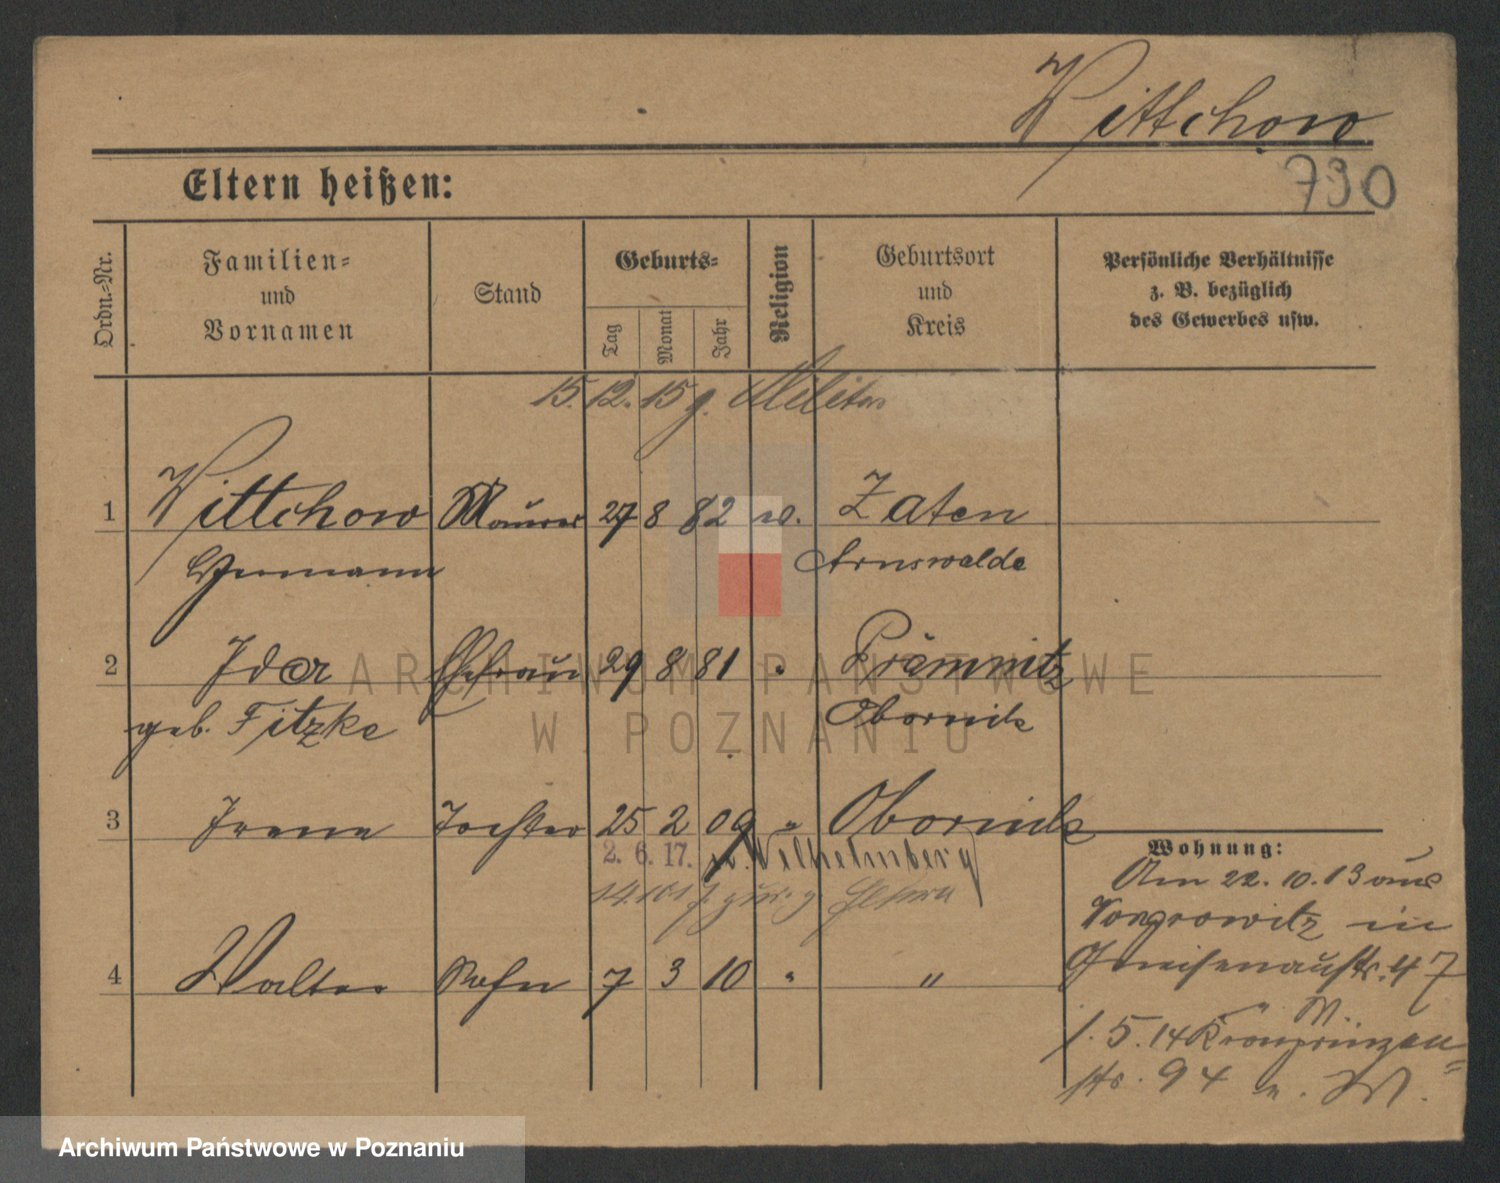 Wittchow
730
Eltern heißen:
Ordn.-Nr.
Familien-
und
Vornamen
Stand
Geburts-
Tag
Monat
Jahr
Religion
Geburtsort
und
Kreis
Persönliche Verhältnisse
z. B. bezüglich
des Gewerbes usw.
15. 12. 15 z. Militär
1 Wittchow Maurer 27 8 82 ev. Zaten
Hermann Arnswalde
2 Ida Ehefrau 29 8 81 " Prämnitz
geb. Fitzke Obornik
3 Irene Tochter 25 2 09 " Obornick
2. 6. 17. n. Wilhelmberg
4 Walter Sohn 7 3 10 " "
Wohnung:
Am 22. 10. 13 aus
Wongrowitz in
Gneisenaustr. 47
b. W.
1. 5. 14 Kronprinzen-
str. 94 b. W.
ARCHIWUM PAŃSTWOWE
W POZNANIU
Archiwum Państwowe w Poznaniu